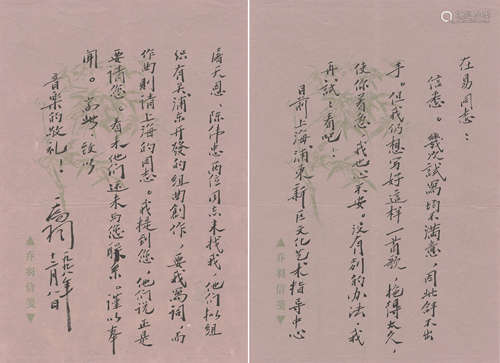 在易同志：
信悉。几次试写均不满意，因此仍不出
手。但我仍想写好这样一首歌，拖得太久，
使你着急，我也不安。没有别的办法，我
再试试看吧！
日前上海浦东新区文化艺术指导中心
潘大恩、陈伟忠两位同志来找我，他们拟组
织有关浦东开发的组曲创作，要我写词，而
作曲则请上海的同志。我提到您，他们说正是
要请您。看来他们还未与您联系。谨以奉
闻。专此，致以
音乐的敬礼！
乔羽
一九九六年
十二月八日
▲乔羽信笺▼
▲乔羽信笺▼